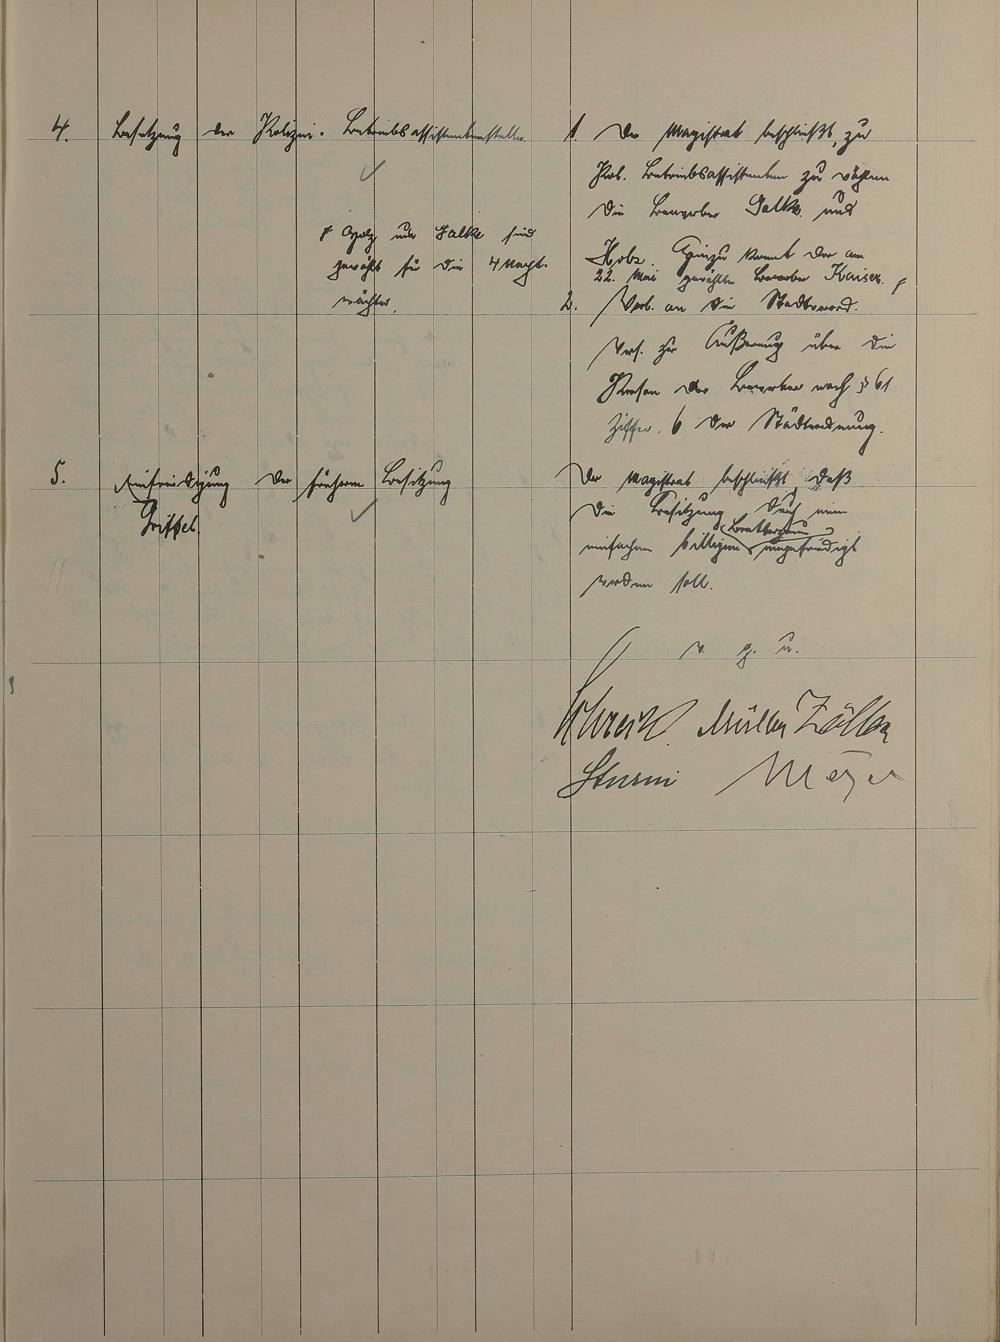 4. Besetzung der Polizei-Betriebsassistentenstelle.
f Holz und Galke sind
gewählt für die 4 Nacht-
wächter.
1. Der Magistrat beschließt, zu
Pol. Betriebsassistenten zu wählen
die Bewerber Galke und
Holz. Hinzu kommt der am
22. Mai gewählte Bewerber Kaiser. f
2. Vorl. an die Stadtverord.
Vers. zur Äußerung über die
Person der Bewerber nach § 61
Ziffer 6 der Städteordnung.
5. Einfriedigung der früheren Besitzung
Griffel.
Der Magistrat beschließt, daß
die Besitzung durch einen
einfachen billigen Bretterzaun eingefriedigt
werden soll.
v. g. u.
Müller Zöller
Sturm Meyer